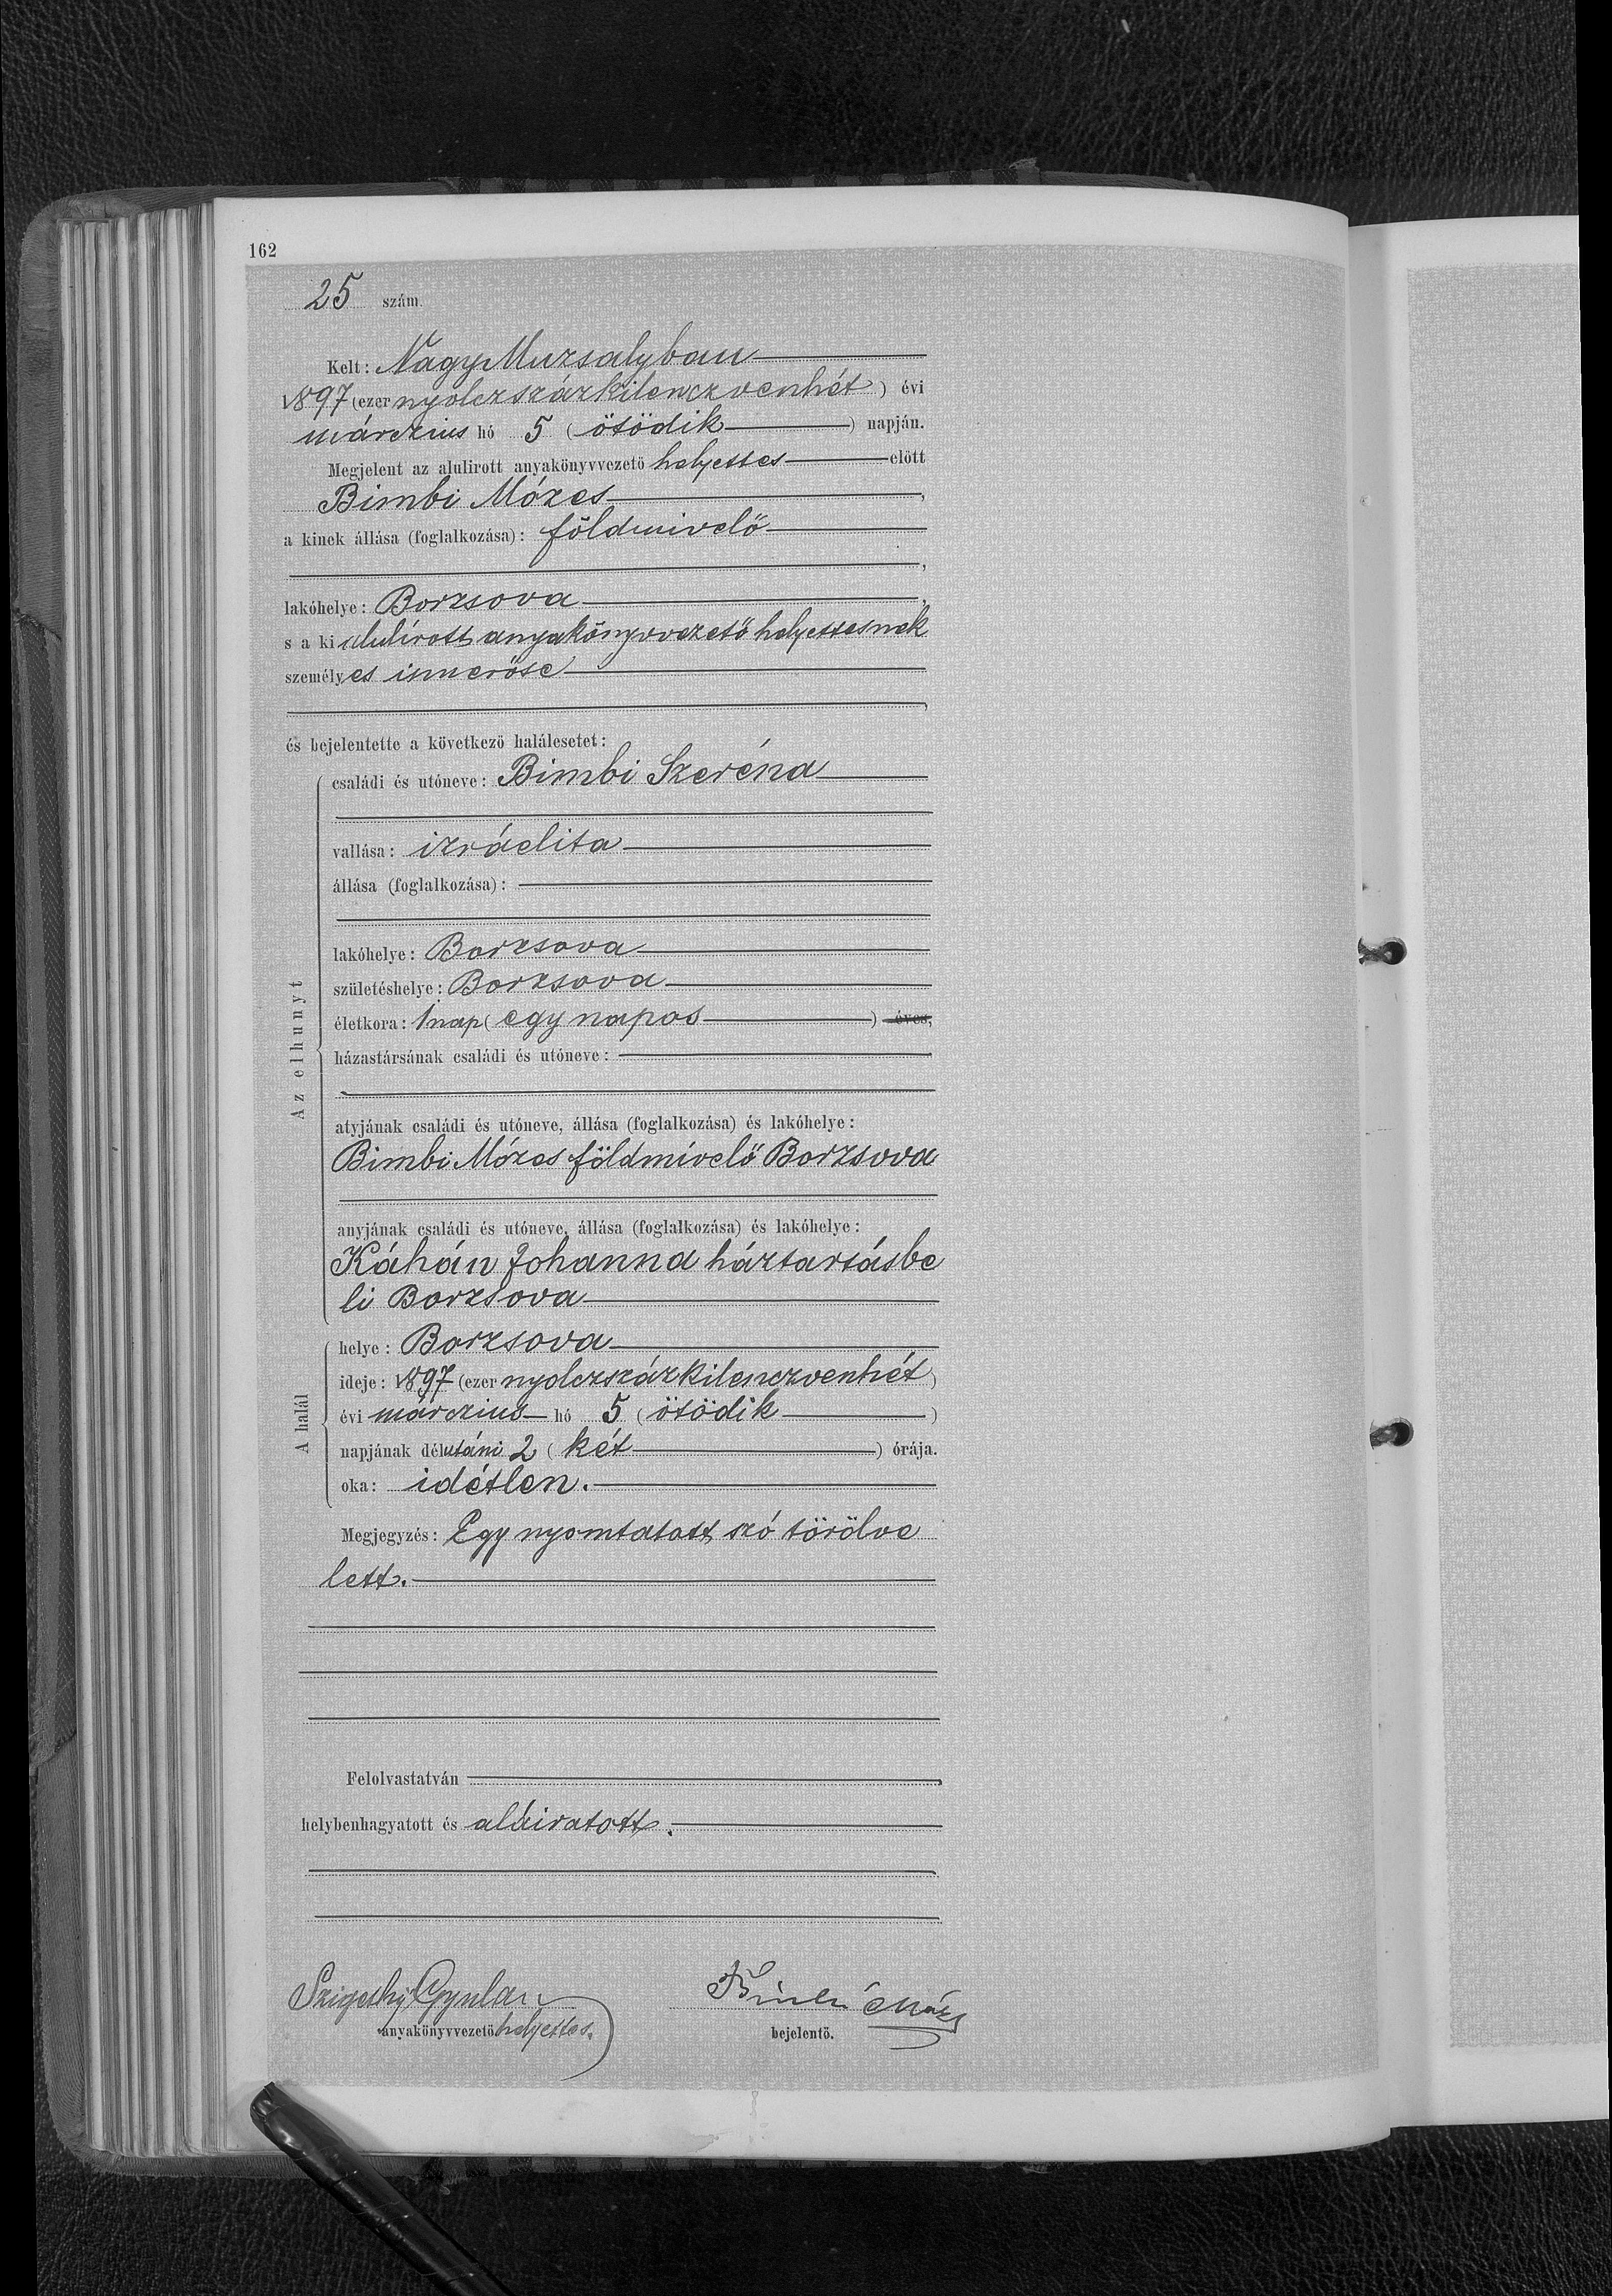 162
25 szám.
Kelt: NagyMuzsalyban
1897 (ezer nyolczszázkilenczvenhét) évi
márczius hó 5 (ötödik) napján.
Megjelent az alulirott anyakönyvvezető helyettes előtt
Bimbi Mózes,
a kinek állása (foglalkozása): földmivelő
,
lakóhelye: Borzsova,
s a ki alulírott anyakönyvvezető helyettesnek
személyes ismerőse
,
és bejelentette a következő halálesetet:
Az elhunyt
családi és utóneve: Bimbi Szeréna
vallása: izráelita
állása (foglalkozása):
lakóhelye: Borzsova
születéshelye: Borzsova
életkora: 1 nap (egy napos) éves,
házastársának családi és utóneve:
atyjának családi és utóneve, állása (foglalkozása) és lakóhelye:
Bimbi Mózes földmívelő Borzsova
anyjának családi és utóneve, állása (foglalkozása) és lakóhelye:
Káhán Johanna háztartásbe
li Borzsova
A halál
helye: Borzsova
ideje: 1897 (ezer nyolczszázkilenczvenhét)
évi márczius hó 5 (ötödik)
napjának délutáni 2 (két) órája.
oka: idétlen.
Megjegyzés: Egy nyomtatott szó törölve
lett.
Felolvastatván
helybenhagyatott és aláiratott.
Gyula Bimbi Mózes
anyakönyvvezető helyettes. bejelentő.